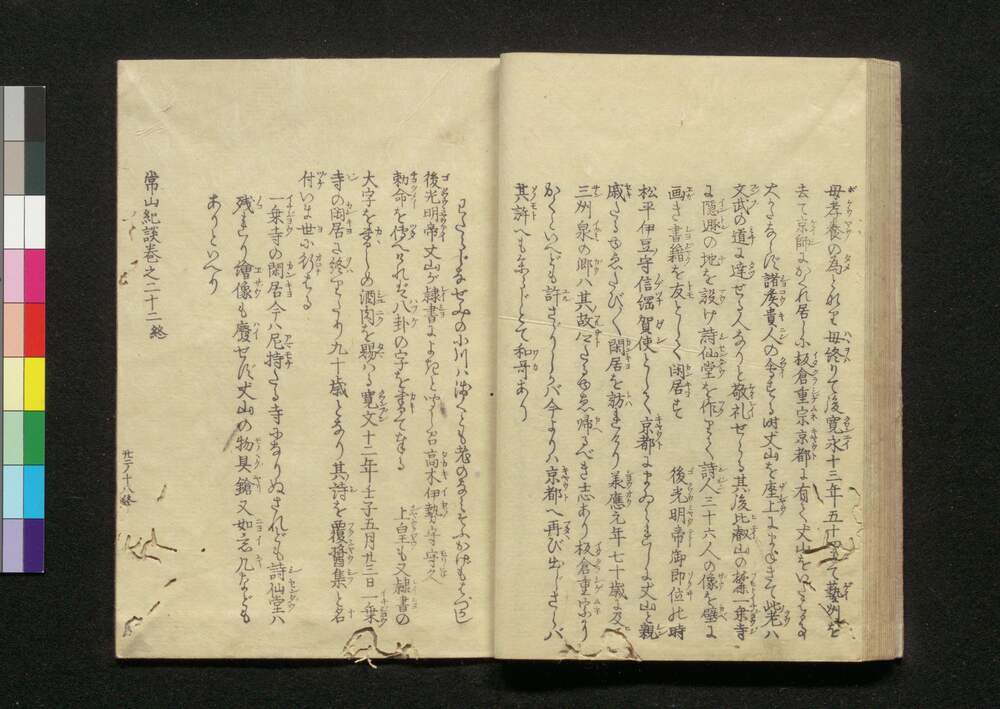 母孝養の為とぞ母終りて後寛永十三年五十四にて藝州を
去て京師にかくれ居しに板倉重宗京都に有て丈山をいたはる事
大かたならず諸侯貴人の会する時丈山を座上にまねきて此老は
文武の道に達せる人なりと敬礼せらる其後比叡山の麓一乗寺
に隠遯の地を設け詩仙堂を作りて詩人三十六人の像を壁に
画き書籍を友として閑居す 後光明帝御即位の時
松平伊豆守信綱賀使として京都にまゐられしに丈山と親
戚たる故たびたび閑居を訪れけり承應元年七十歳に及び
三州泉の郷ハ其故郷たる故帰るべき志あり板倉重宗より
かくといへども許さざりしかバ今よりハ京都へ再び出じさらバ
其許へも参らじとて和哥あり
わたらじなせみの小川ハ浅くとも老のなみそふかげもはづかし
後光明帝丈山が隷書によきと聞し召高木伊勢守守久
勅命を傳へられたバ八卦の字を書て奉る 上皇も又隷書の
大字を書しめ酒肉を賜ハる寛文十二年壬子五月廿三日一乗
寺の閑居に終りたり九十歳となり其詩を覆醤集と名
付いま世に行はる
一乗寺の閑居今ハ尼持たる寺になりぬされども詩仙堂ハ
残れり繪像も廢せず丈山の物具鎗又如意几なども
ありといへり
常山紀談巻之二十二終
廿二ノ十八終